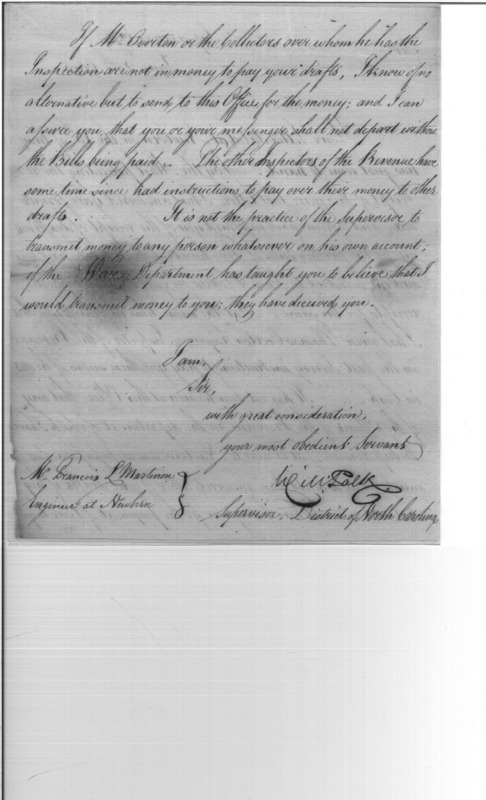 If Mr. Overton or the Collectors over whom he has the
Inspection are not in money to pay your drafts, I know of no
alternative but to send to this Office for the money; and I can
assure you, that you or your messenger shall not depart without
the Bills being paid. The other Inspectors of the Revenue have
some time since had instructions to pay over their money to other
drafts. It is not the practice of the Supervisor to
transmit money to any person whatsoever on his own account;
if the War Department has taught you to believe that I
would transmit money to you; they have deceived you.
I am,
Sir,
with great consideration,
your most obedient Servant
Mr. Francis L Martinon
Wm Polk
Engineer at Newbern
Supervisor, District of North Carolina